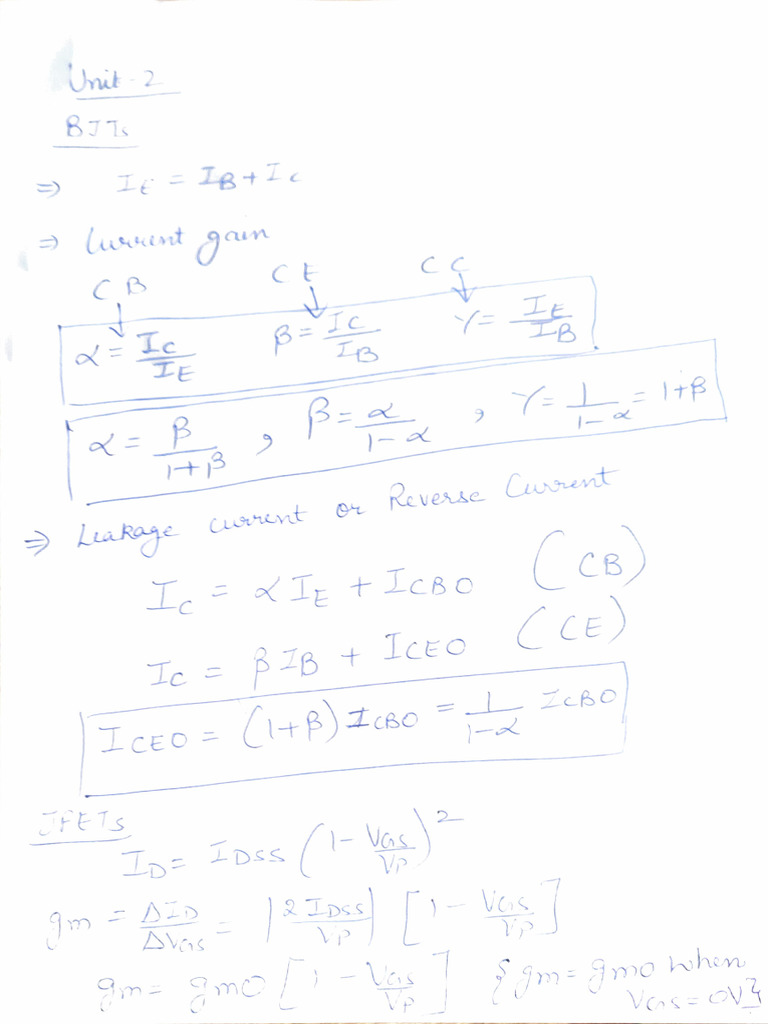 Unit-2
BJTs
⇒ I_E = I_B + I_C
⇒ Current gain
CB CE CC
↓ ↓ ↓
α = I_C/I_E β = I_C/I_B γ = I_E/I_B
α = β/(1+β) , β = α/(1-α) , γ = 1/(1-α) = 1+β
⇒ Leakage current or Reverse Current
I_C = αI_E + I_CBO (CB)
I_C = βI_B + I_CEO (CE)
I_CEO = (1+β) I_CBO = 1/(1-α) I_CBO
JFETs
I_D = I_DSS (1 - V_GS/V_P)^2
gm = ΔI_D/ΔV_GS = |2I_DSS/V_P| [1 - V_GS/V_P]
gm = gmo [1 - V_GS/V_P] {gm = gmo when
V_GS = 0V}